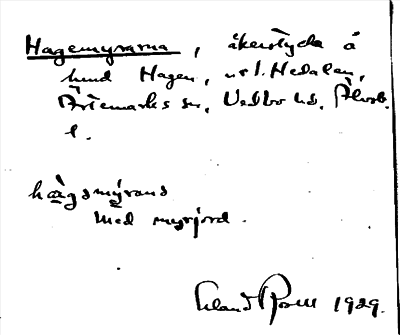 Hagemyrarna, åkerstycke å
hmd Hagen, u.s.l. Hedalen,
Ärtemarks sn, Vedbo hd, Älvsb.
l.
hàgəmýrans
med myrjord.
Erland Rosell 1929.